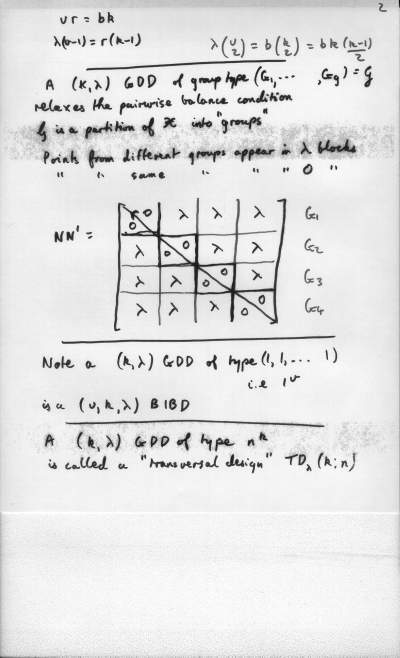 2
vr = bk
λ(v-1) = r(k-1)
λ(v/2) = b(k/2) = bk(k-1)/2
A (k,λ) GDD of group type (G1,... ,Gg) = G
relaxes the pairwise balance condition
G is a partition of X into "groups"
Points from different groups appear in λ blocks
" " same " " " 0 "
NN' =
r 0 λ λ λ G1
0
λ 0 λ λ G2
0
λ λ 0 λ G3
0
λ λ λ 0 G4
0
Note a (k,λ) GDD of type (1,1,... 1)
i.e 1^v
is a (v,k,λ) BIBD
A (k,λ) GDD of type n^k
is called a "transversal design" TDλ(k;n)